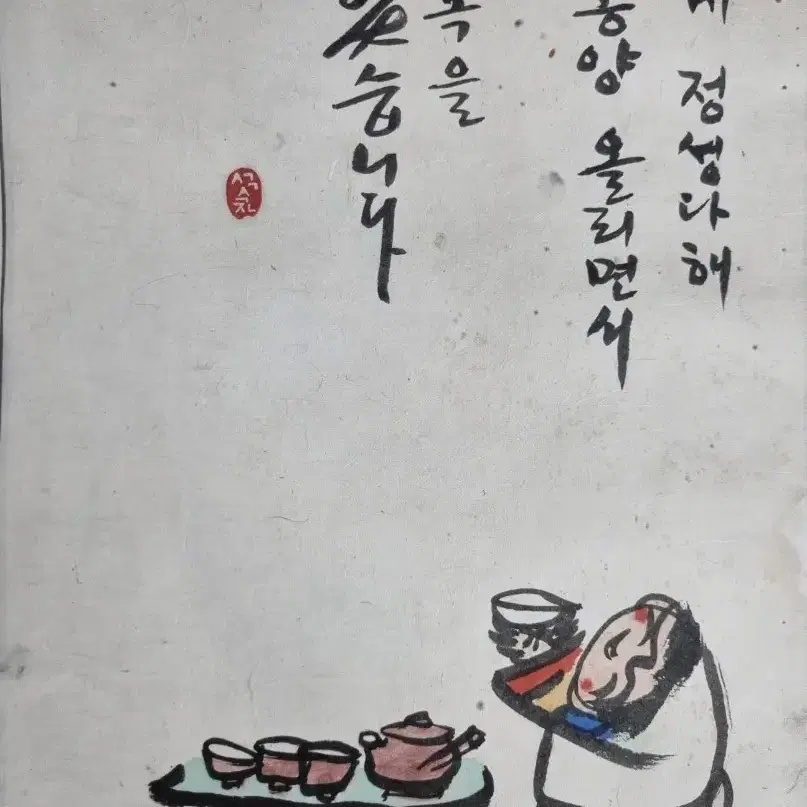 정성다해
공양 올리면서
복을
습니다